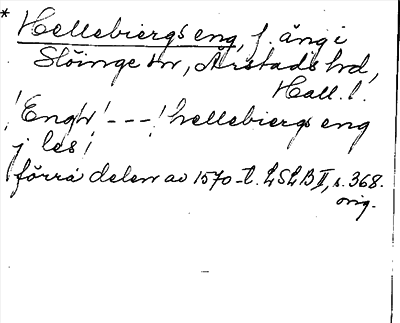 * Hellebiergs eng, f. äng i
Slöinge sn, Årstads hd,
Hall. l.
! Engh ! - - - ! hellebiergs eng
j les !
förra delen av 1570-t. LSLB II, s. 368.
orig.